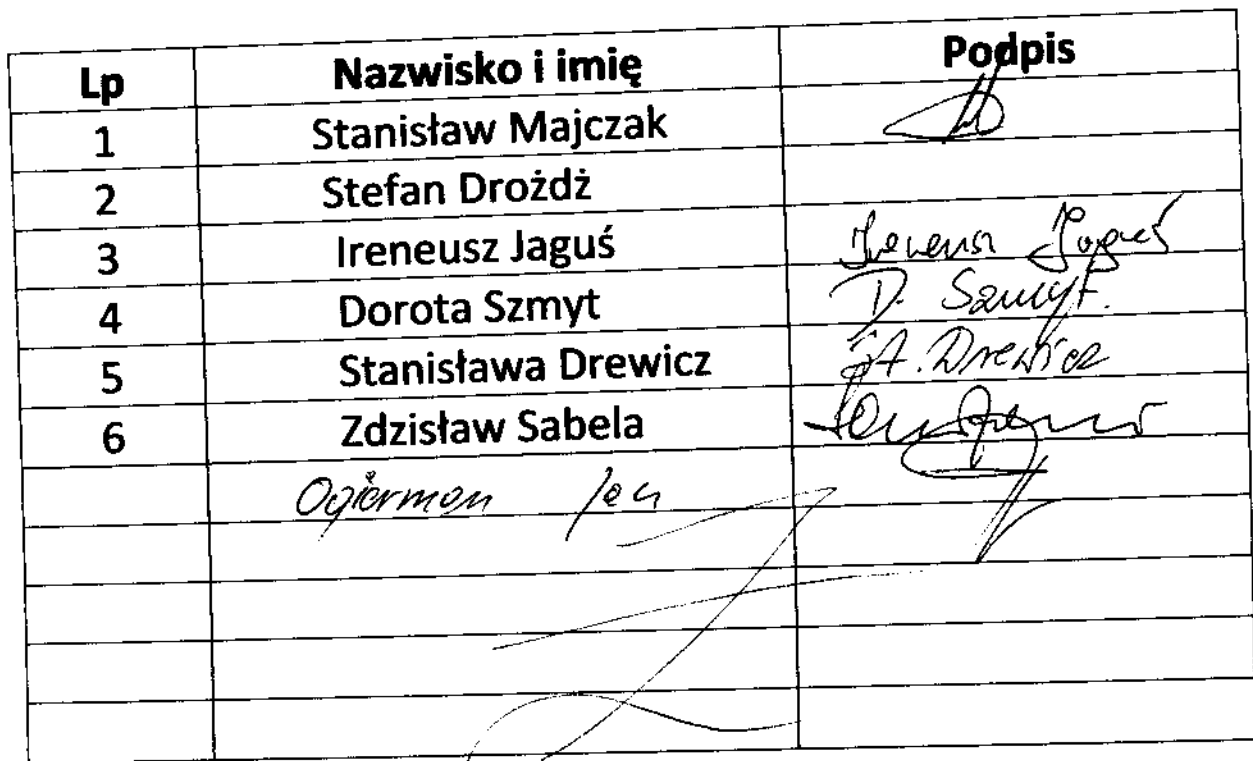 Lp Nazwisko i imię Podpis
1 Stanisław Majczak
2 Stefan Drożdż
3 Ireneusz Jaguś Ireneusz Jaguś
4 Dorota Szmyt D. Szmyt.
5 Stanisława Drewicz St. Drewicz
6 Zdzisław Sabela
Ogierman Jan